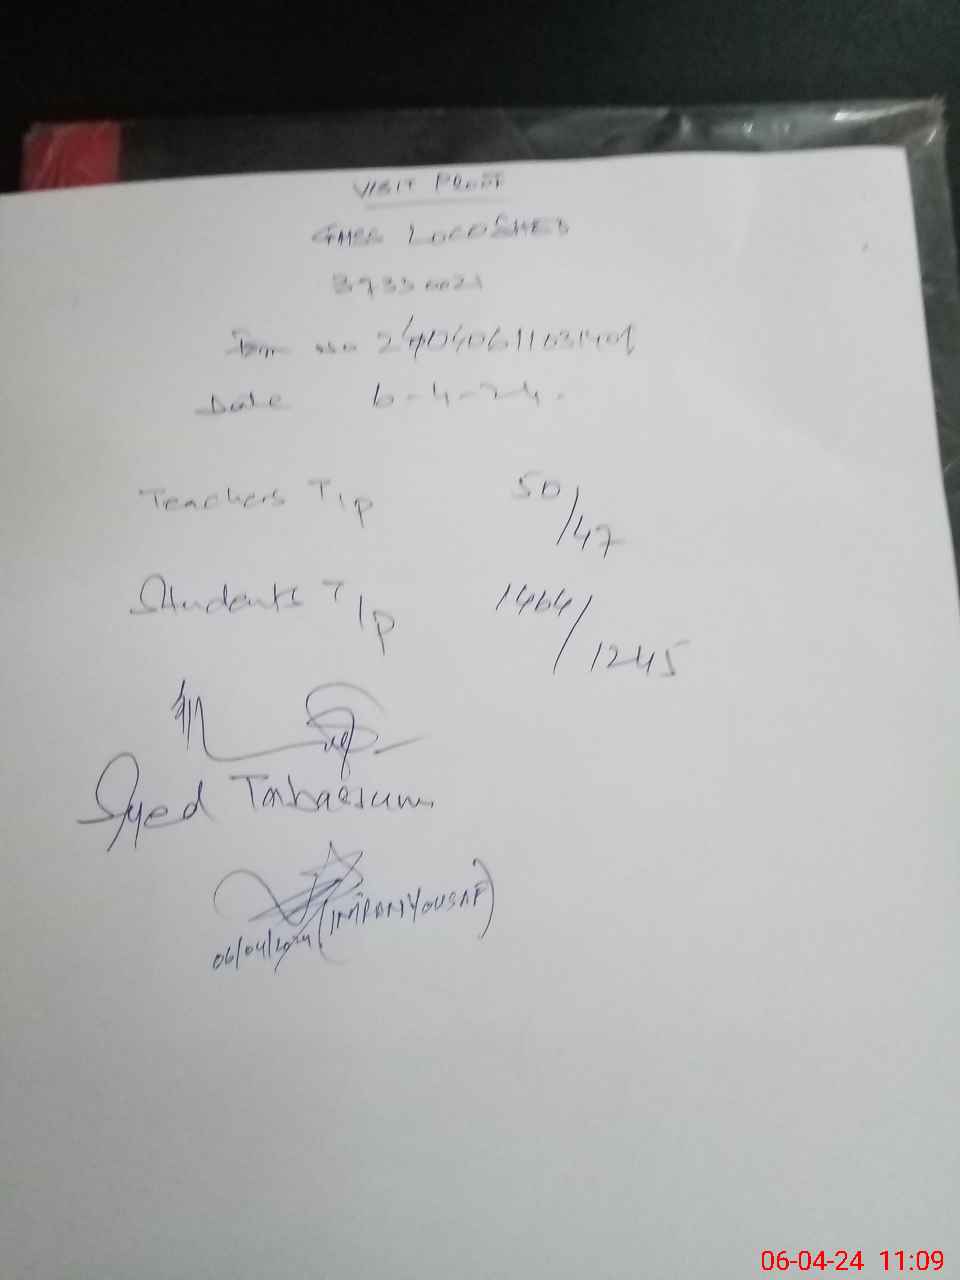 VISIT PROOF
LOCOSHED
37330021
no 24040611031401
Date 6-4-24.
Teachers T/p 50/47
Students T/p 1464/1245
Syed Tabassum
06/04/2024 (IMRAN YOUSAF)
06-04-24 11:09